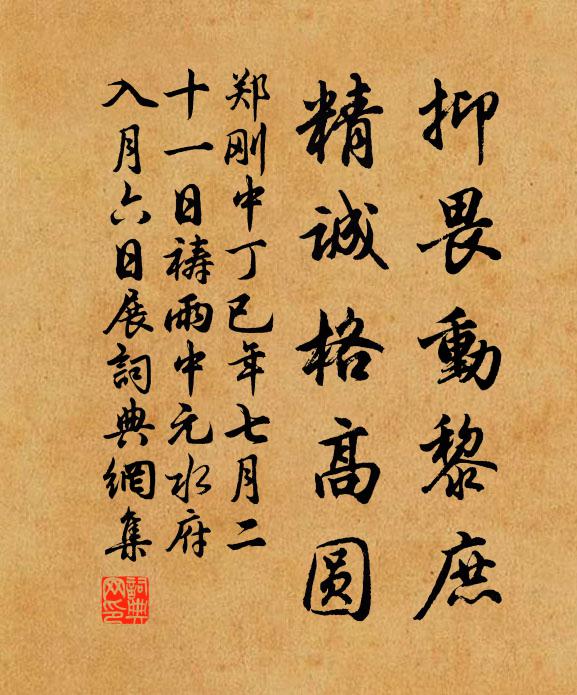 抑畏動黎庶
精誠格高圆
郑刚中丁巳年七月二
十一日禱雨中元水府
入月六日展詞典網集
詞典网印